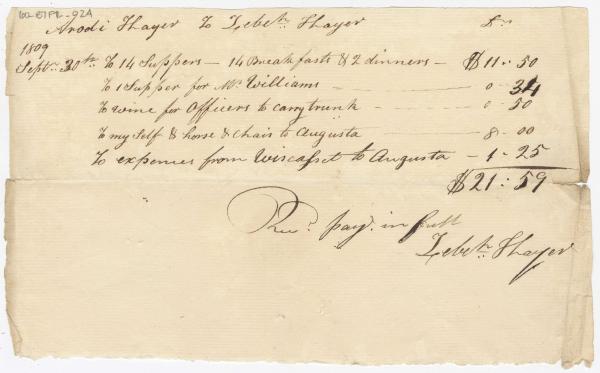 Arodi Thayer To Zebetn. Thayer Dr.
1809
Septr. 30th To 14 Suppers — 14 Breakfasts & 2 dinners — $11 - 50
To 1 Supper for Mr. Williams — 0 34
To wine for Officers to carry trunk — 0 - 50
To my Self & horse & Chais to Augusta 8 - 00
To expenses from Wiscasset to Augusta — 1 - 25
$21 : 59
Recd. payt. in full
Zebetn. Thayer